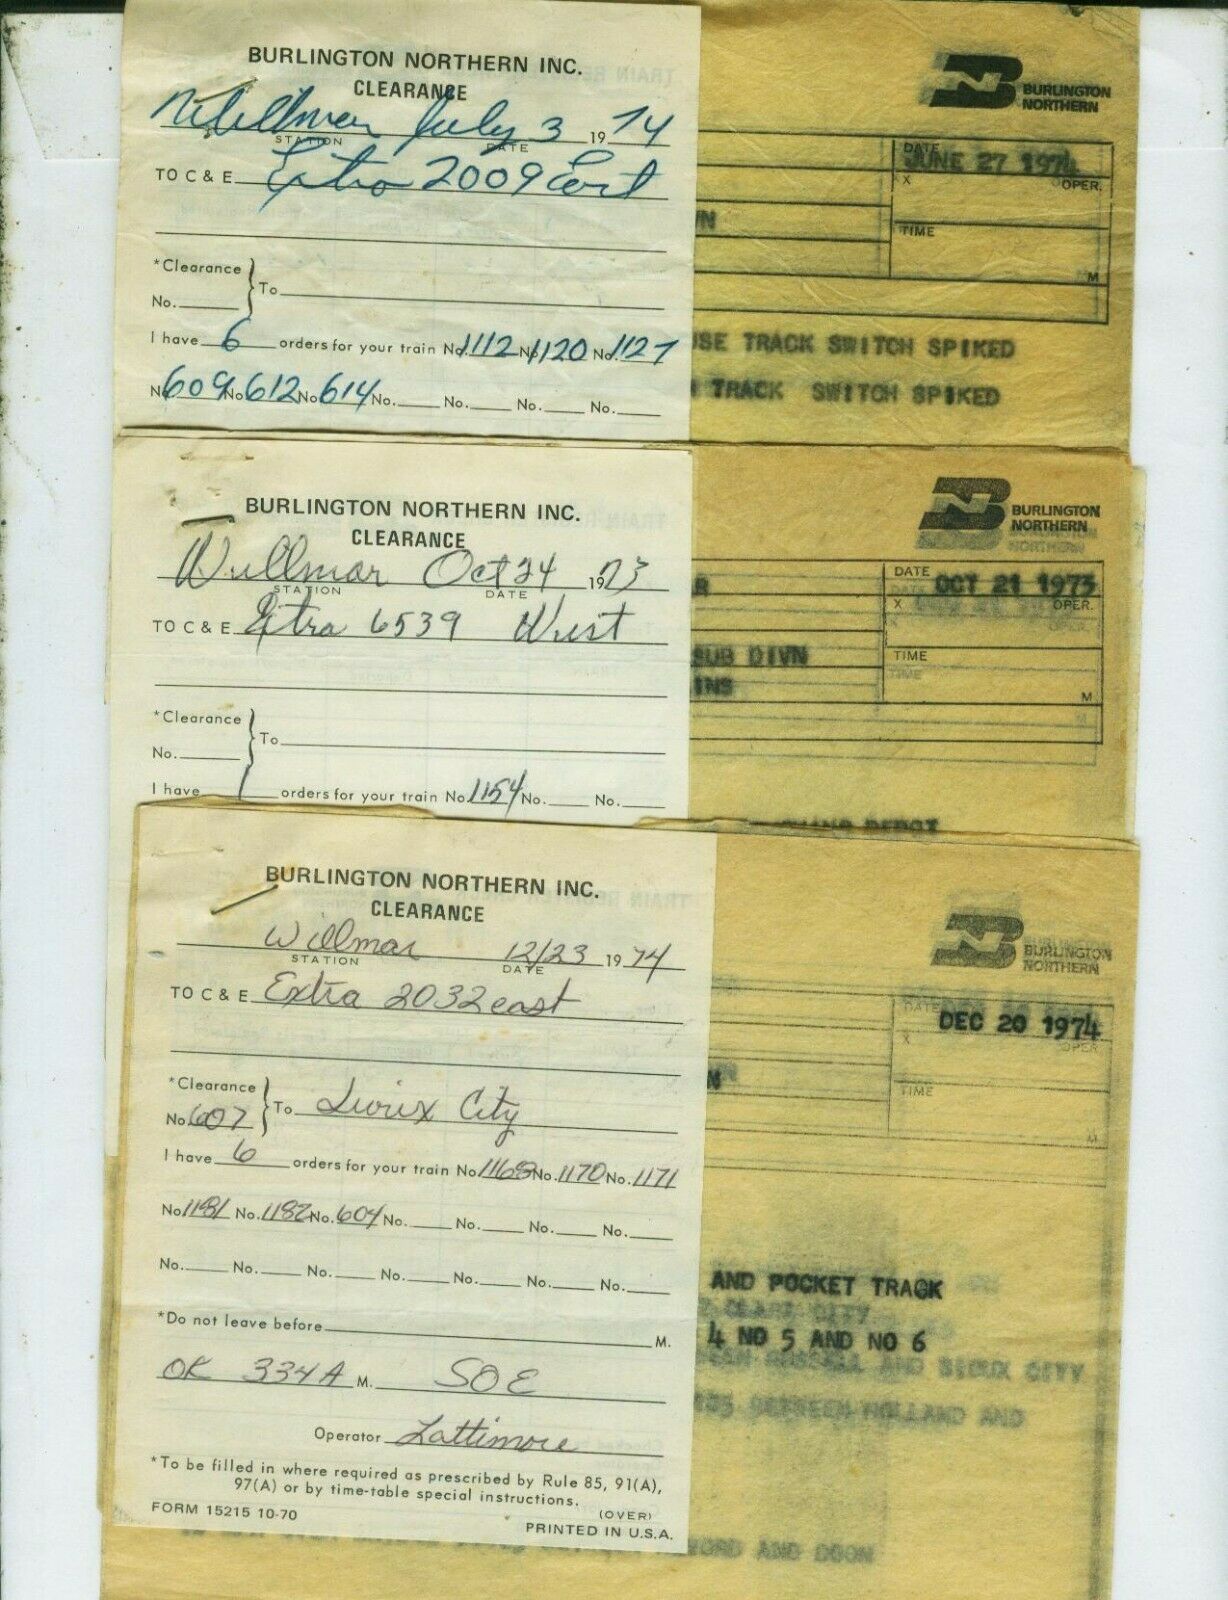 BURLINGTON NORTHERN INC.
CLEARANCE
Willmar July 3 1974
STATION DATE
TO C & E Extra 2009 East
*Clearance
No. To
I have 6 orders for your train No. 1112 No. 1120 No. 1127
No 609 No 612 No 614 No. No. No. No.
BURLINGTON
NORTHERN
DATE
JUNE 27 1974
X OPER.
VN
TIME
M
USE TRACK SWITCH SPIKED
TRACK SWITCH SPIKED
BURLINGTON NORTHERN INC.
CLEARANCE
Willmar Oct 24 1973
STATION DATE
TO C & E Extra 6539 West
*Clearance
No. To
I have 1 orders for your train No. 1154 No. No.
BURLINGTON
NORTHERN
NORTHERN
DATE OCT 21 1973
R
X OPER.
OPER.
SUB DIVN
TIME
INS
TIME
M
M
DEPOT
BURLINGTON NORTHERN INC.
CLEARANCE
Willmar 12/23 1974
STATION DATE
TO C & E Extra 2032 east
*Clearance
No. 607 To Sioux City
I have 6 orders for your train No 1168 No. 1170 No. 1171
No 1181 No. 1182 No. 604 No. No. No. No.
No. No. No. No. No. No. No.
*Do not leave before M.
OK 334A M. SOE
Operator Lattimore
*To be filled in where required as prescribed by Rule 85, 91(A),
97(A) or by time-table special instructions.
FORM 15215 10-70 (OVER)
PRINTED IN U.S.A.
BURLINGTON
NORTHERN
DATE
DEC 20 1974
X OPER
N
TIME
M
AND POCKET TRACK
CITY
4 NO 5 AND NO 6
AND SIOUX CITY
BETWEEN HOLLAND AND
AND DOON